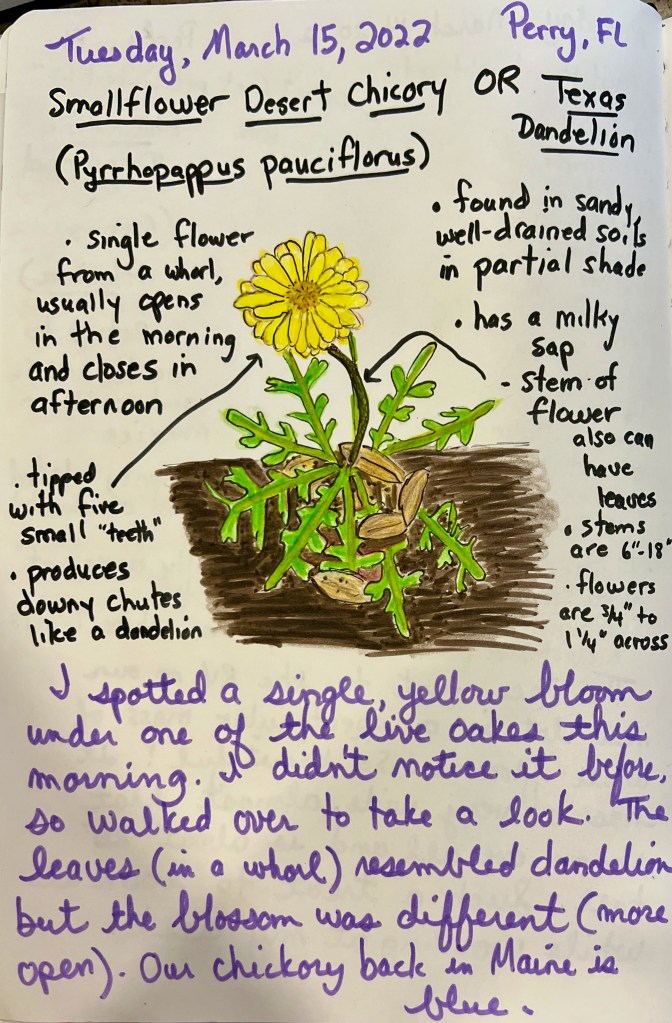 Tuesday, March 15, 2022 Perry, FL
Smallflower Desert Chicory OR Texas
Dandelion
(Pyrrhopappus pauciflorus)
• single flower
from a whorl,
usually opens
in the morning
and closes in
afternoon
• tipped
with five
small "teeth"
• produces
downy chutes
like a dandelion
• found in sandy,
well-drained soils
in partial shade
• has a milky
sap
- stem of
flower
also can
have
leaves
• stems
are 6"-18"
• flowers
are 3/4" to
1 1/4" across
I spotted a single, yellow bloom
under one of the live oakes this
morning. I didn't notice it before,
so walked over to take a look. The
leaves (in a whorl) resembled dandelion
but the blossom was different (more
open). Our chickory back in Maine is
blue.